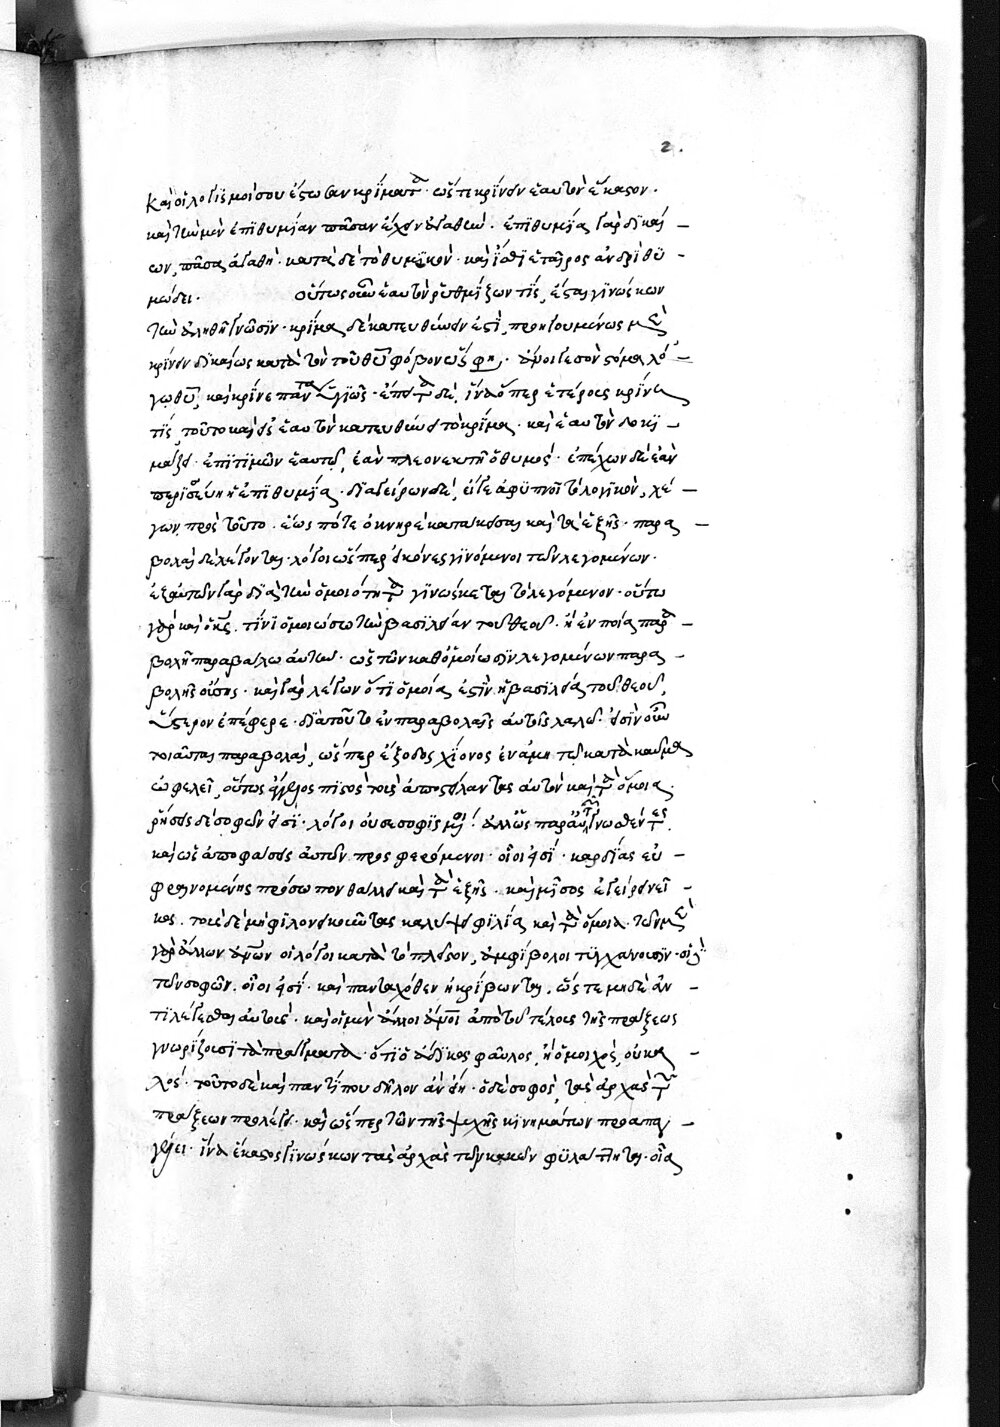 2.
καὶ οἱ λογισμοί σου ἔστωσαν κρίματα· ὥστε κρίνειν ἑαυτὸν ἕκαστον·
καὶ τὴν μὲν ἐπιθυμίαν πᾶσαν ἔχειν ἀγαθήν· ἐπιθυμία γὰρ δικαί
ων, πᾶσα ἀγαθή· κατὰ δὲ τὸ θυμικὸν· καὶ ἴσθι ἑταῖρος ἀνδρὶ θυ
μώδει· οὕτως οὖν ἑαυτὸν ῥυθμίζων τίς, ἔσται γινώσκων
τὴν ἀληθῆ γνῶσιν· κρίμα δὲ κατευθύνειν ἐστὶ, προηγουμένως μὲν
κρίνειν δικαίως κατὰ τὸν τοῦ θυ φόβον ὥς φη· ἅμοι γε σὸν στόμα λό
γω θυ, καὶ κρῖνε πάντα ὑγιῶς· ἔπειτα δὲ, ἵνα ὅπερ ἑτέροις κρίνει
τίς τοῦτο καὶ εἰς ἑαυτὸν κατευθύνει τὸ κρίμα· καὶ ἑαυτὸν δοκι
μάζει· ἐπιτιμῶν ἑαυτῷ, ἐὰν πλεονεκτῇ ὁ θυμός· ἐπέχων δὲ ἐὰν
περισσεύῃ ἡ ἐπιθυμία· διαγείρων δὲ, εἴγε ἀφυπνοῖ τὸ λογικόν, λέ
γων πρὸς τοῦτο· ἕως πότε ὀκνηρὲ κατάκεισαι καὶ τὰ ἑξῆς· παρα
βολαὶ δὲ λέγονται· λόγοι ὥσπερ εἰκόνες γινόμενοι τῶν λεγομένων·
ἐξ αὐτῶν γὰρ διὰ τὴν ὁμοιότητα γινώσκεται τὸ λεγόμενον· οὕτω
γὰρ καὶ ὁ κς· τίνι ὁμοιώσω τὴν βασιλείαν τοῦ θεοῦ· ἢ ἐν ποίᾳ παρα
βολῇ παραβάλω αὐτήν· ὡς τῶν καθ' ὁμοίωσιν λεγομένων παρα
βολῆς οὔσης· καὶ γὰρ λέγων ὅτι ὁμοία ἐστὶν ἡ βασιλεία τοῦ θεοῦ,
ὕστερον ἐπέφερε· διὰ τοῦτο ἐν παραβολαῖς αὐτοῖς λαλῶ· εἰσὶν οὖν
τοιαῦται παραβολαὶ, ὥσπερ ἔξοδος χίονος ἐν ἀμήτῳ κατὰ καῦμα
ὠφελεῖ, οὕτως ἄγγελος πιστὸς τοὺς ἀποστείλαντας αὐτὸν καὶ τὰ ὅμοια·
ῥήσεις δὲ σοφῶν εἰσὶ· λόγοι οὐ σεσοφισμένοι· ἀλλ' ὡς παρ' αὐτῶν γνωσθέντες
καὶ ὡς ἀποφάσεις αὐτῶν προσφερόμενοι· οἷοι εἰσὶ· καρδίας εὐ
φραινομένης πρόσωπον θάλλει καὶ τὰ ἑξῆς· καὶ μῖσος ἐγείρει νεῖ
κος· τοὺς δὲ μὴ φιλονεικοῦντας καλύψει φιλία καὶ τὰ ὅμοια· τῶν μὲν
γὰρ ἄλλων ἀνων οἱ λόγοι κατὰ τὸ πλεῖστον, ἀμφίβολοι τυγχάνουσιν· οἱ δὲ
τῶν σοφῶν, οἷοι εἰσὶ· καὶ πανταχόθεν ἠκρίβωνται, ὥστε μηδὲ ἀν
τιλέγεσθαι αὐτοῖς· καὶ οἱ μὲν ἄλλοι ἀνοι ἀπὸ τοῦ τέλους τῆς πράξεως
γνωρίζουσι τὰ πράγματα· ὅτι ὁ ἄδικος φαῦλος, ἢ ὁ μοιχὸς, οὐ κα
λός· τοῦτο δὲ καὶ παντί που δῆλον ἂν εἴη· ὁ δὲ σοφὸς, τὰς ἀρχὰς τῶν
πράξεων προλέγει· καὶ ὥσπερ τῶν τῆς ψυχῆς κινημάτων προαπαγ
γέλλει· ἵνα ἕκαστος γινώσκων τὰς ἀρχὰς τῶν κακῶν φυλάττηται· οἷα